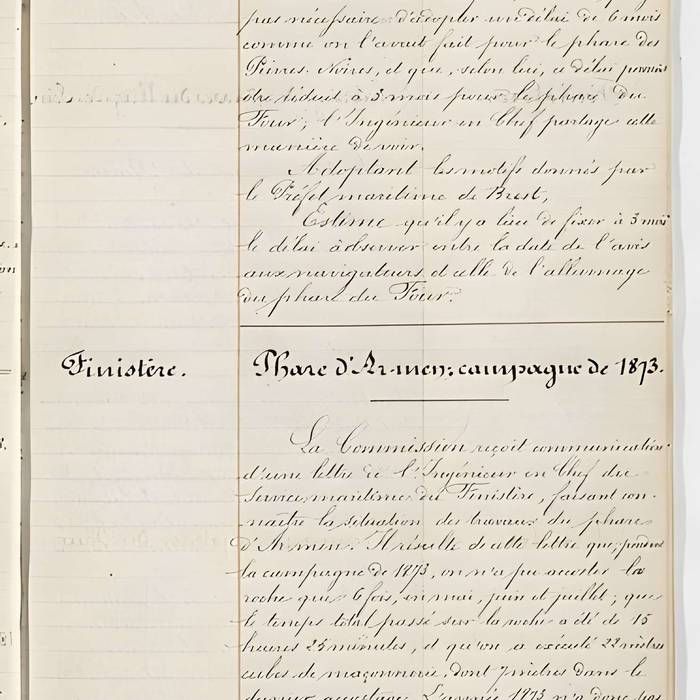 pas nécessaire d'adopter un délai de 6 mois
comme on l'avait fait pour le phare des
Pierres Noires, et que, selon lui, ce délai pourrait
être réduit à 3 mois pour le phare du
Four; l'Ingénieur en Chef partage cette
manière de voir.
Adoptant les motifs donnés par
le Préfet maritime de Brest,
Estime qu'il y a lieu de fixer à 3 mois
le délai à observer entre la date de l'avis
aux navigateurs et celle de l'allumage
du phare du Four.
Finistère.
Phare d'Ar-men; campagne de 1873.
La Commission reçoit communication
d'une lettre de l'Ingénieur en Chef du
Service maritime du Finistère, faisant con-
naître la situation des travaux du phare
d'Ar-men. Il résulte de cette lettre que, pendant
la campagne de 1873, on n'a pu accoster la
roche que 6 fois, en mai, juin et juillet; que
le temps total passé sur la roche a été de 15
heures 25 minutes, et qu'on a exécuté 22 mètres
cubes de maçonnerie, dont 7 mètres dans le
dernier accostage. L'année 1873 n'a donc pas